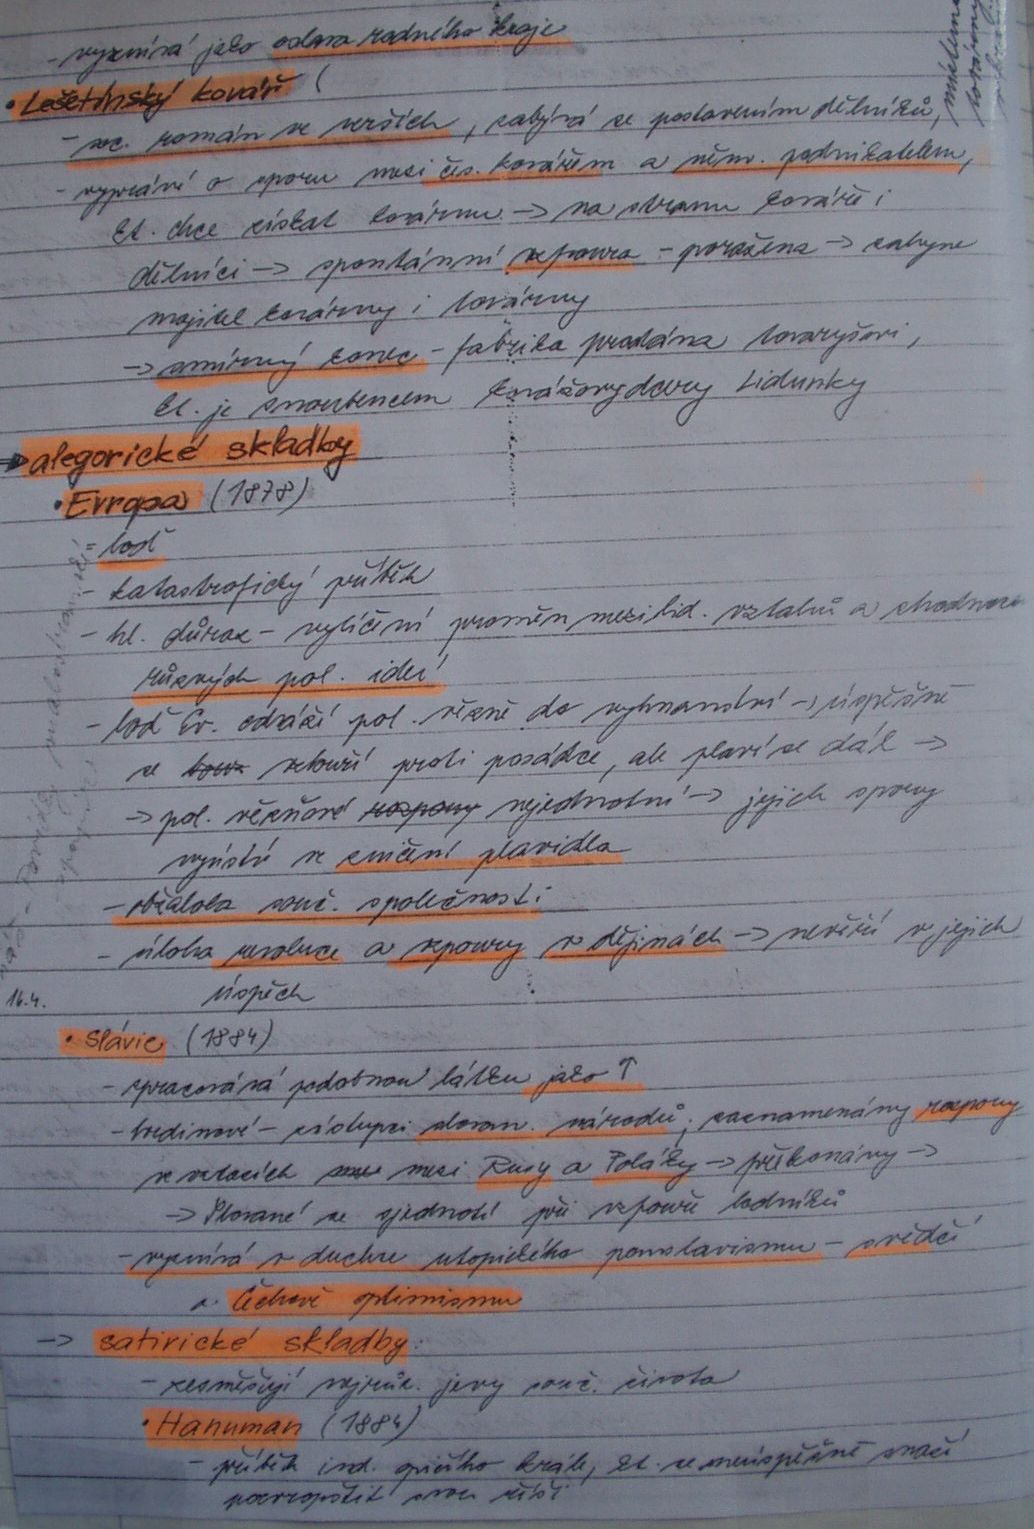 - vyznívá jako oslava rodného kraje
• Lešetínský kovář (
- soc. román ve verších, zabývá se postavením dělníků,
- vypráví o sporu mezi čes. kovářem a něm. podnikatelem,
kt. chce získat kovárnu -> na stranu kováře i
dělníci -> spontánní vzpoura - poražena -> zahyne
majitel kovárny i továrny
-> smírný konec - fabrika prodána tovaryšovi,
kt. je snoubencem kovářovy dcery Lidunky
-> alegorické skladby
• Evropa (1878)
= loď
- katastrofický příběh
- hl. důraz - vylíčení proměn mezilid. vztahů a
různých pol. ideí
- loď Ev. odváží pol. vězně do vyhnanství -> úspěšně
se vzbouří proti posádce, ale plaví se dál ->
-> pol. vězňové rozpory nejednotní -> jejich spory
vyústí ve zničení plavidla
- obžaloba souč. společnosti
- úloha revoluce a vzpoury v dějinách -> nevěří v jejich
úspěch
16.4.
• Slávie (1884)
- zpracovává podobnou látku jako ↑
- hrdinové - zástupci slovan. národů; zaznamenány rozpory
ve vztazích mezi Rusy a Poláky -> překonány ->
-> Slované se sjednotí při vzpouře lodníků
- vyznívá v duchu utopického panslavismu - svědčí
o Čechově optimismu
-> satirické skladby:
- zesměšňují nejrůz. jevy souč. života
• Hanuman (1884)
- příběh ind. opičího krále, kt. se neúspěšně snaží
poevropštit svou říši